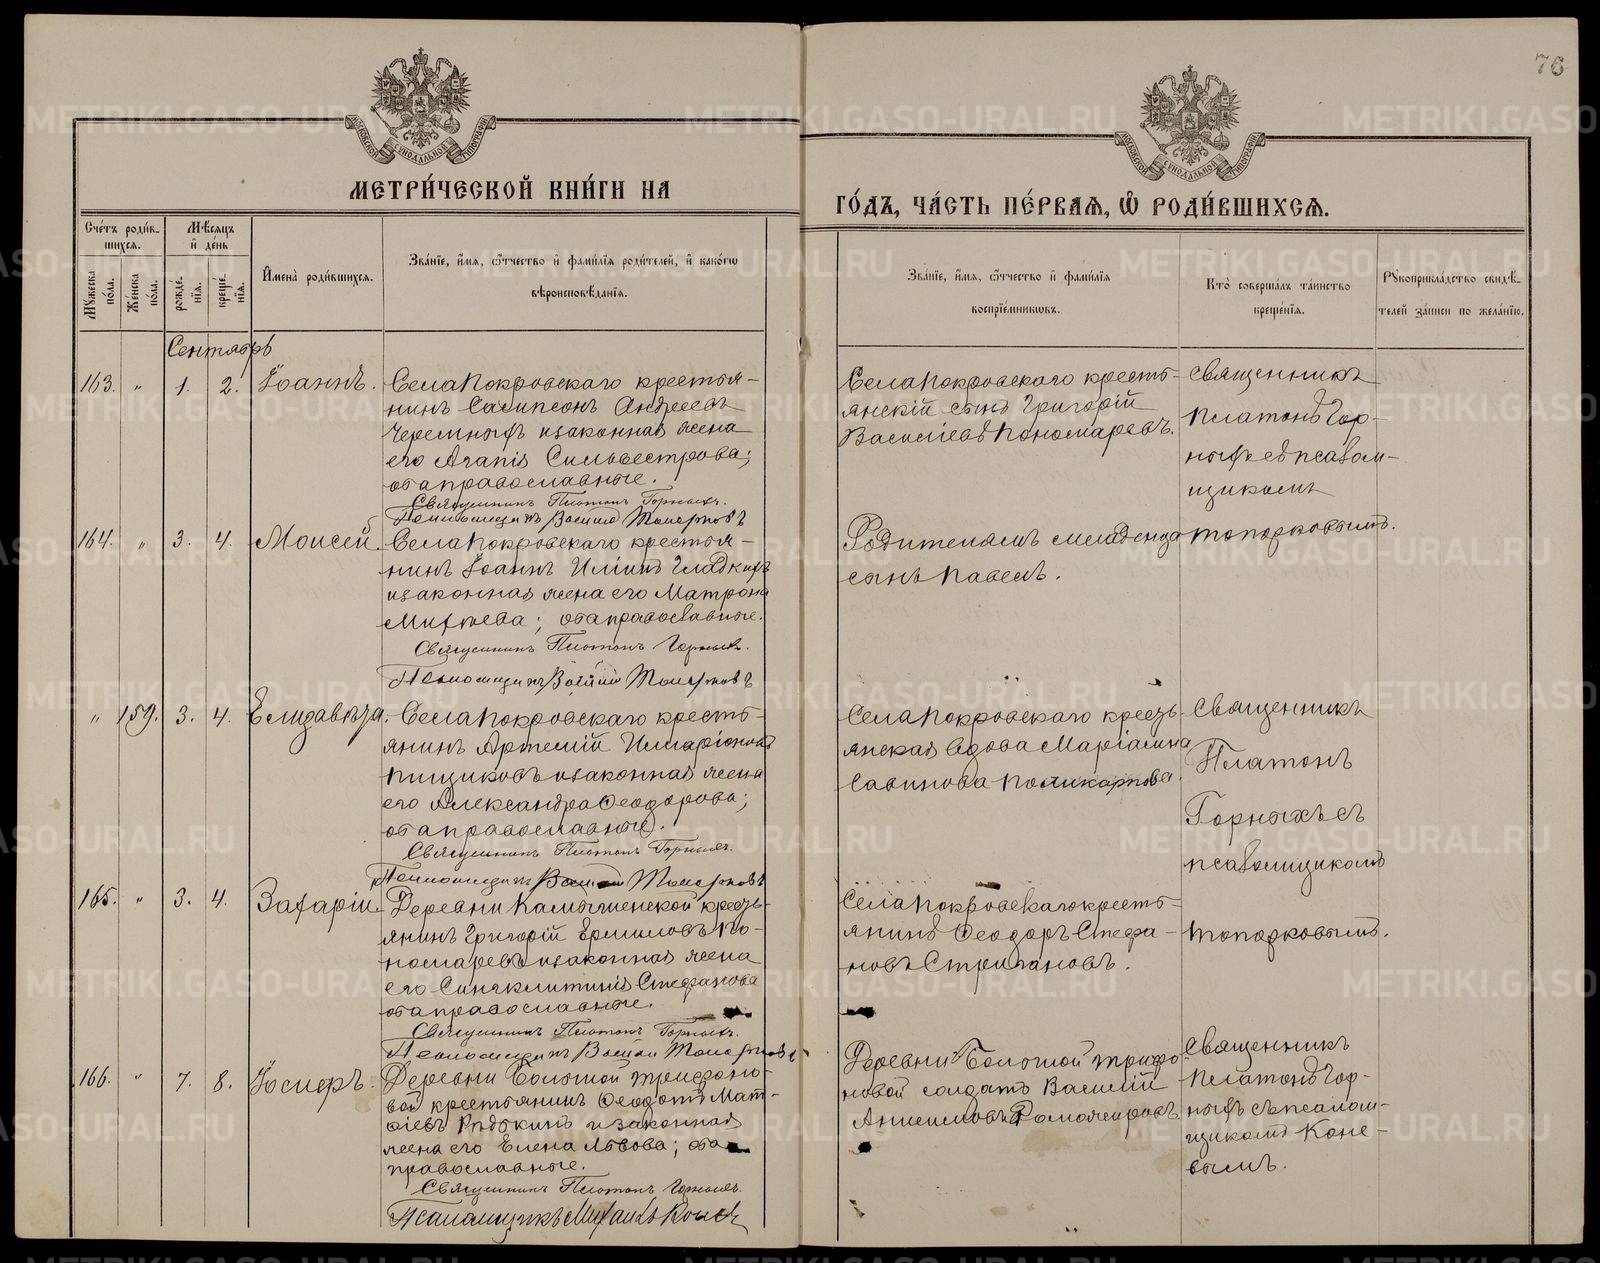 76
МОСКОВСКОЙ СѴНОДАЛЬНОЙ ТИПОГРАФІИ
МОСКОВСКОЙ СѴНОДАЛЬНОЙ ТИПОГРАФІИ
МЕТРИ́ЧЕСКОЙ КНИ́ГИ НА
ГО́ДЪ, ЧА́СТЬ ПЕ́РВАѦ, Ѽ РОДИ́ВШИХСѦ.
Сче́тъ роди́в-
шихся.
Мѣсяцъ
и҆ де́нь
Мꙋжеска по́ла.
Же́нска по́ла.
рожде́-
нїя.
креще́-
нїя.
И҆мена̀ роди́вшихся.
Зва́нїе, и҆́мя, ѻ҆́тчество и҆ фами́лїя роди́телей, и҆ како́гѡ
вѣроисповѣ́данїя.
Зва́нїе, и҆́мя, ѻ҆́тчество и҆ фами́лїя
воспрїе́мникѡвъ.
Кто̀ соверша́лъ та́инство
креще́нїя.
Рꙋкоприкла́дство свидѣ́-
телей за́писи по жела́нїю.
Сентябрь
163. " 1. 2. Іоаннъ.
Села Покровскаго крестья-
нинъ Сампсонъ Андреевъ
Черемныхъ и законная жена
его Агапія Сильвестрова;
оба православные.
Священникъ Платонъ Горныхъ.
Псаломщикъ Василій Топорковъ
Села Покровскаго кресть-
янскій сынъ Григорій
Василіевъ Пономаревъ.
Священникъ
Платонъ Гор-
ныхъ съ псалом-
щикомъ
164. " 3. 4. Моисей.
Села Покровскаго крестья-
нинъ Іоаннъ Иліинъ Гладкихъ
и законная жена его Матрона
Михѣева; оба православные.
Священникъ Платонъ Горныхъ.
Псаломщикъ Василій Топорковъ
Родителямъ младенца
сынъ Павелъ.
Топорковымъ.
" 159. 3. 4. Елизавета.
Села Покровскаго кресть-
янинъ Артемій Илларіоновъ
Пищиковъ и законная жена
его Александра Ѳеодорова;
оба православные.
Священникъ Платонъ Горныхъ.
Псаломщикъ Василій Топорковъ
Села Покровскаго кресть-
янская вдова Маріамна
Савинова Поликарпова.
Священникъ
Платонъ
Горныхъ съ
псаломщикомъ
165. " 3. 4. Захарій.
Деревни Камышенской кресть-
янинъ Григорій Ермиловъ По-
номаревъ и законная жена
его Синклитикія Стефанова
оба православные.
Священникъ Платонъ Горныхъ.
Псаломщикъ Василій Топорковъ
Села Покровскаго кресть-
янинъ Ѳеодоръ Стефа-
новъ Стригановъ.
Топорковымъ.
166. " 7. 8. Іосифъ.
Деревни Большой Трифоно-
вой крестьянинъ Ѳеодотъ Мат-
ѳіевъ Рядкинъ и законная
жена его Елена Львова; оба
православные.
Священникъ Платонъ Горныхъ.
Псаломщикъ Михаилъ Коневъ
Деревни Большой Трифо-
новой солдатъ Василій
Анисимовъ
Священникъ
Платонъ Гор-
ныхъ съ псалом-
щикомъ Коне-
вымъ.
METRIKI.GASO-URAL.RU